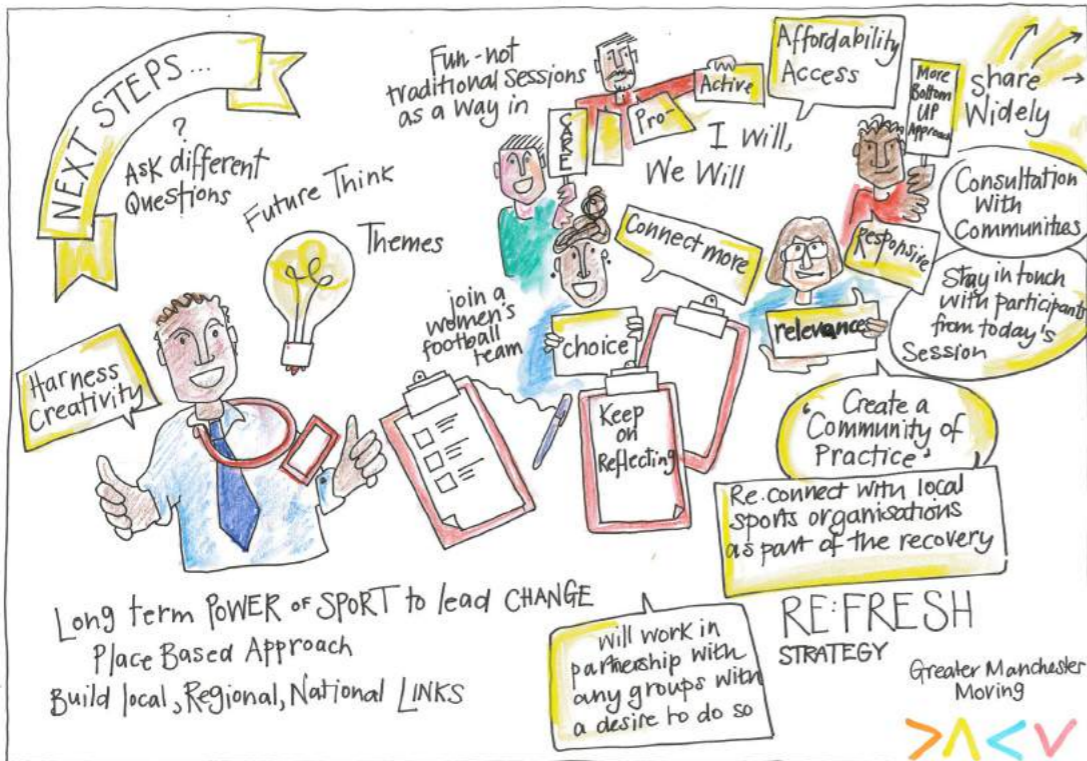 NEXT STEPS...
?
Ask different
Questions
Future Think
Themes
Harness
Creativity
Fun-not
traditional sessions
as a way in
CARE
Pro-
Active
I will,
We Will
Affordability
Access
More
Bottom
UP
Approach
Share
Widely
Consultation
With
Communities
Connect more
Responsive
Stay in touch
with participants
from today's
Session
join a
women's
football
team
choice
relevance
Keep
on
Reflecting
'Create a
Community of
Practice'
Re.connect with local
sports organisations
as part of the recovery
Long term POWER of SPORT to lead CHANGE
Place Based Approach
Build local, Regional, National LINKS
Will work in
partnership with
any groups with
a desire to do so
RE:FRESH
STRATEGY
Greater Manchester
Moving